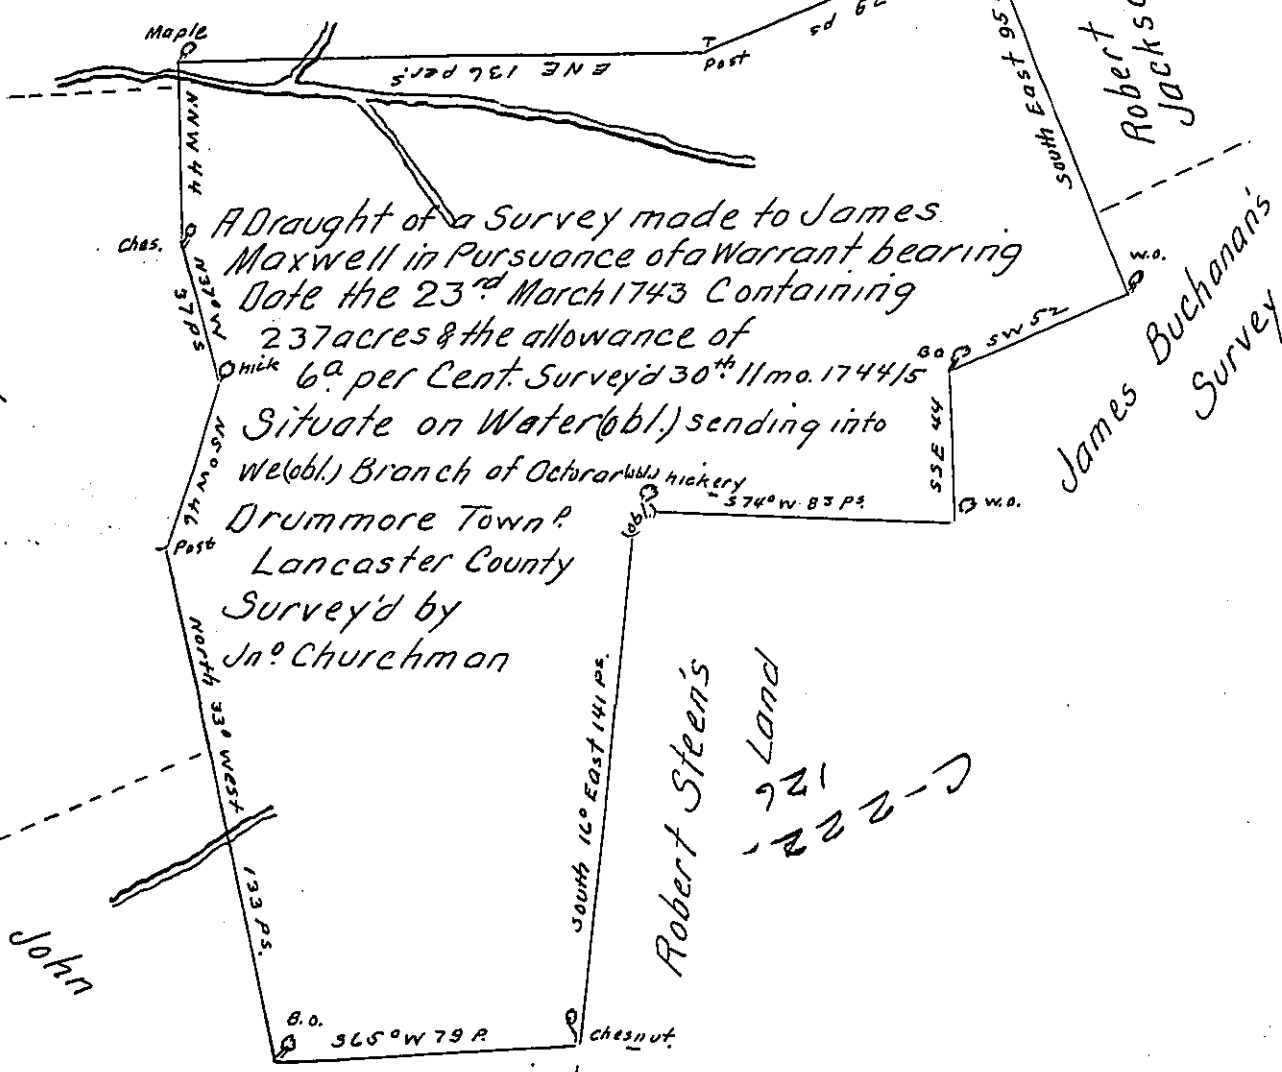 Maple
Post
ENE 136 per.s
79 ps
South East 95
Robert
James Buchanan's
Survey
NNW 44
Ches.
N37°W
37 ps
hick
Post
North 33° West
133 Ps.
A Draught of a Survey made to James
Maxwell in Pursuance of a Warrant bearing
Date the 23rd March 1743 Containing
237 acres & the allowance of
6a per Cent. Survey'd 30th 11 mo. 1744/5
Situate on Water(obl.) sending into
We(obl.) Branch of Octorar(obl.)
Drummore Townp.
Lancaster County
Survey'd by
Jno Churchman
hickery
(obl.)
S74°W 83 Ps.
BO
SW 52
W.O.
SSE 44
W.O.
South 16° East 141 Ps.
Robert Steen's
Land
C-222-
126
John
B.O.
S65°W 79 P.
Chesnut.